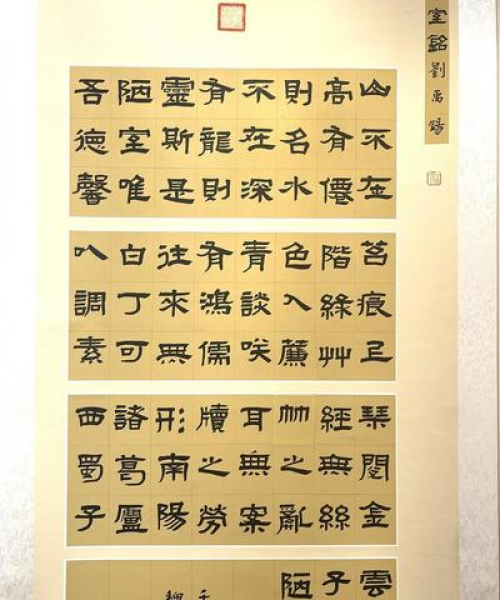 室銘 劉禹錫
山不在
高有僊
則名水
不在深
有龍則
靈斯是
陋室唯
吾德馨
苔痕上
階綠艸
色入簾
青談咲
有鴻儒
往來無
白丁可
以調素
琴閱金
經無絲
竹之亂
耳無案
牘之勞
形南陽
諸葛廬
西蜀子
雲
子
陋